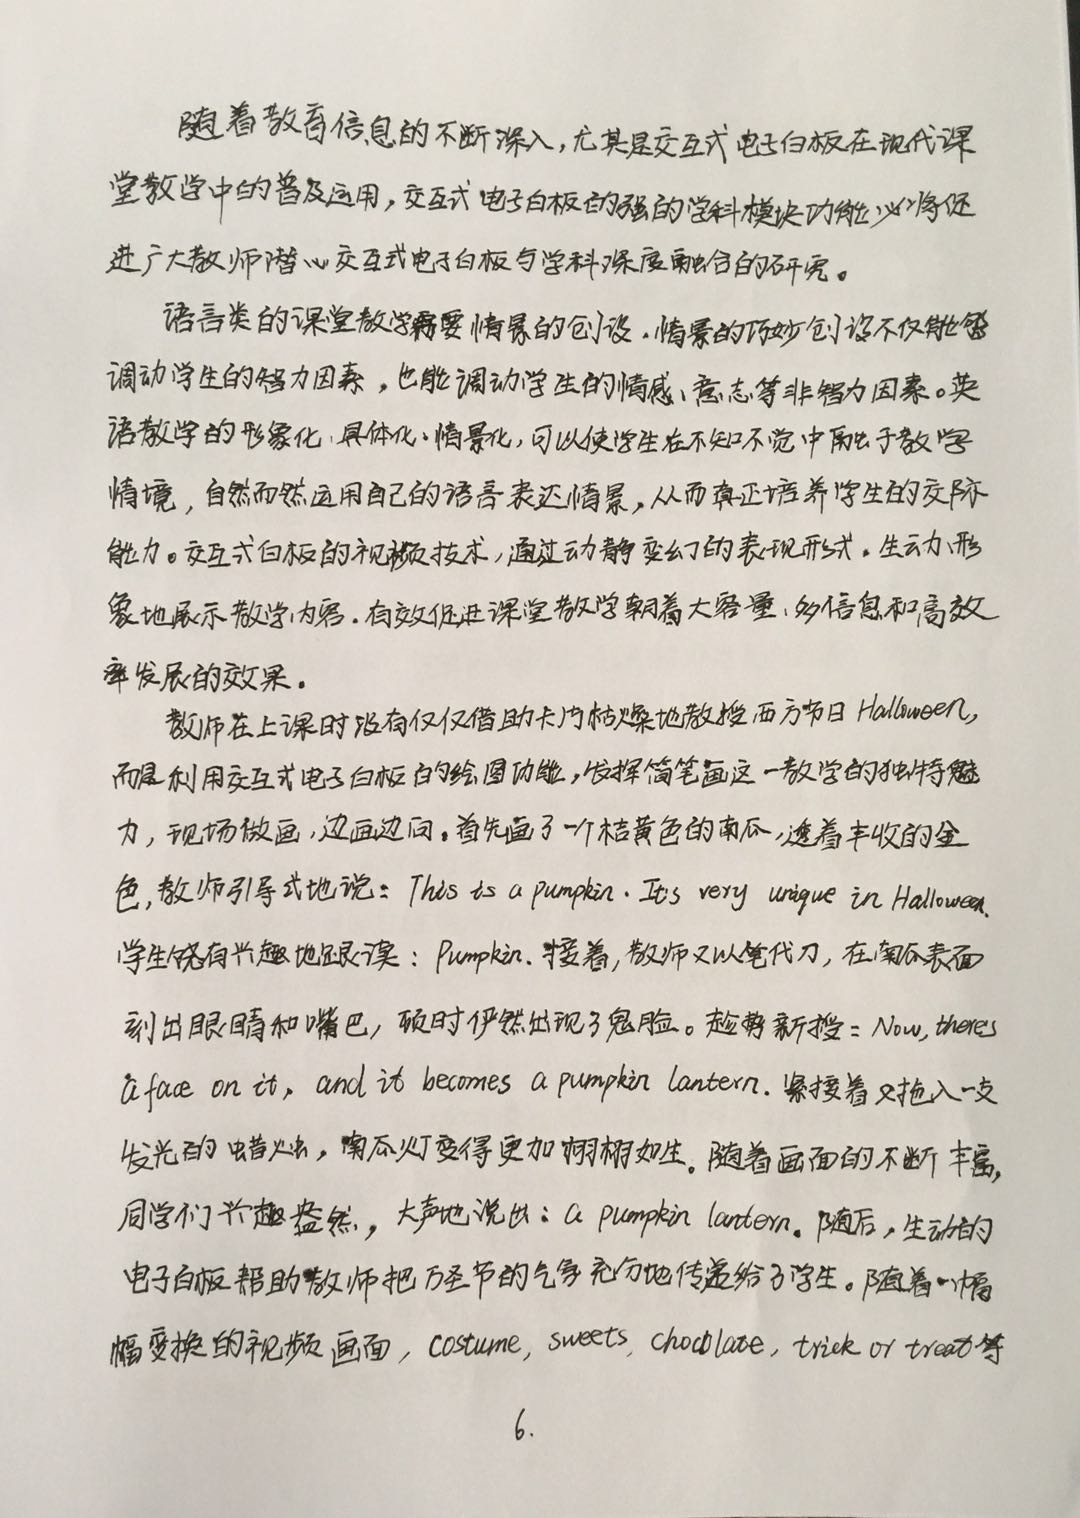 随着教育信息的不断深入，尤其是交互式电子白板在现代课
堂教学中的普及运用，交互式电子白板的强的学科模块功能必将促
进广大教师潜心交互式电子白板与学科深度融合的研究。
语言类的课堂教学需要情景的创设．情景的巧妙创设不仅能够
调动学生的智力因素，也能调动学生的情感、意志等非智力因素。英
语教学的形象化、具体化、情景化，可以使学生在不知不觉中融于教学
情境，自然而然运用自己的语言表达情景，从而真正培养学生的交际
能力。交互式白板的视频技术，通过动静变幻的表现形式．生动、形
象地展示教学内容．有效促进课堂教学朝着大容量、多信息和高效
率发展的效果。
教师在上课时没有仅仅借助卡片枯燥地教授西方节日Halloween，
而是利用交互式电子白板的绘图功能，发挥简笔画这一教学的独特魅
力，现场做画，边画边问。首先画了一个桔黄色的南瓜，透着丰收的金
色，教师引导式地说：This is a pumpkin. It's very unique in Halloween.
学生饶有兴趣地跟读：Pumpkin. 接着，教师又以笔代刀，在南瓜表面
刻出眼睛和嘴巴，顿时俨然出现了鬼脸。趁势新授：Now, there's
a face on it, and it becomes a pumpkin lantern. 紧接着又拖入一支
发光的蜡烛，南瓜灯变得更加栩栩如生。随着画面的不断丰富，
同学们兴趣盎然，大声地说出：a pumpkin lantern. 随后，生动的
电子白板帮助教师把万圣节的气氛充分地传递给了学生。随着一幅
幅变换的视频画面，costume, sweets, chocolate, trick or treat等
6.